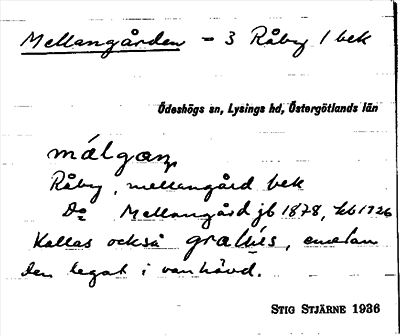 Mellangården = 3 Råby 1 bek
Ödeshögs sn, Lysings hd, Östergötlands län
málgan
Råby, mellangård bek
Do Mellangård jb 1878, kb 1726
Kallas också graliés, emedan
den legat i vanhävd.
STIG STJÄRNE 1936